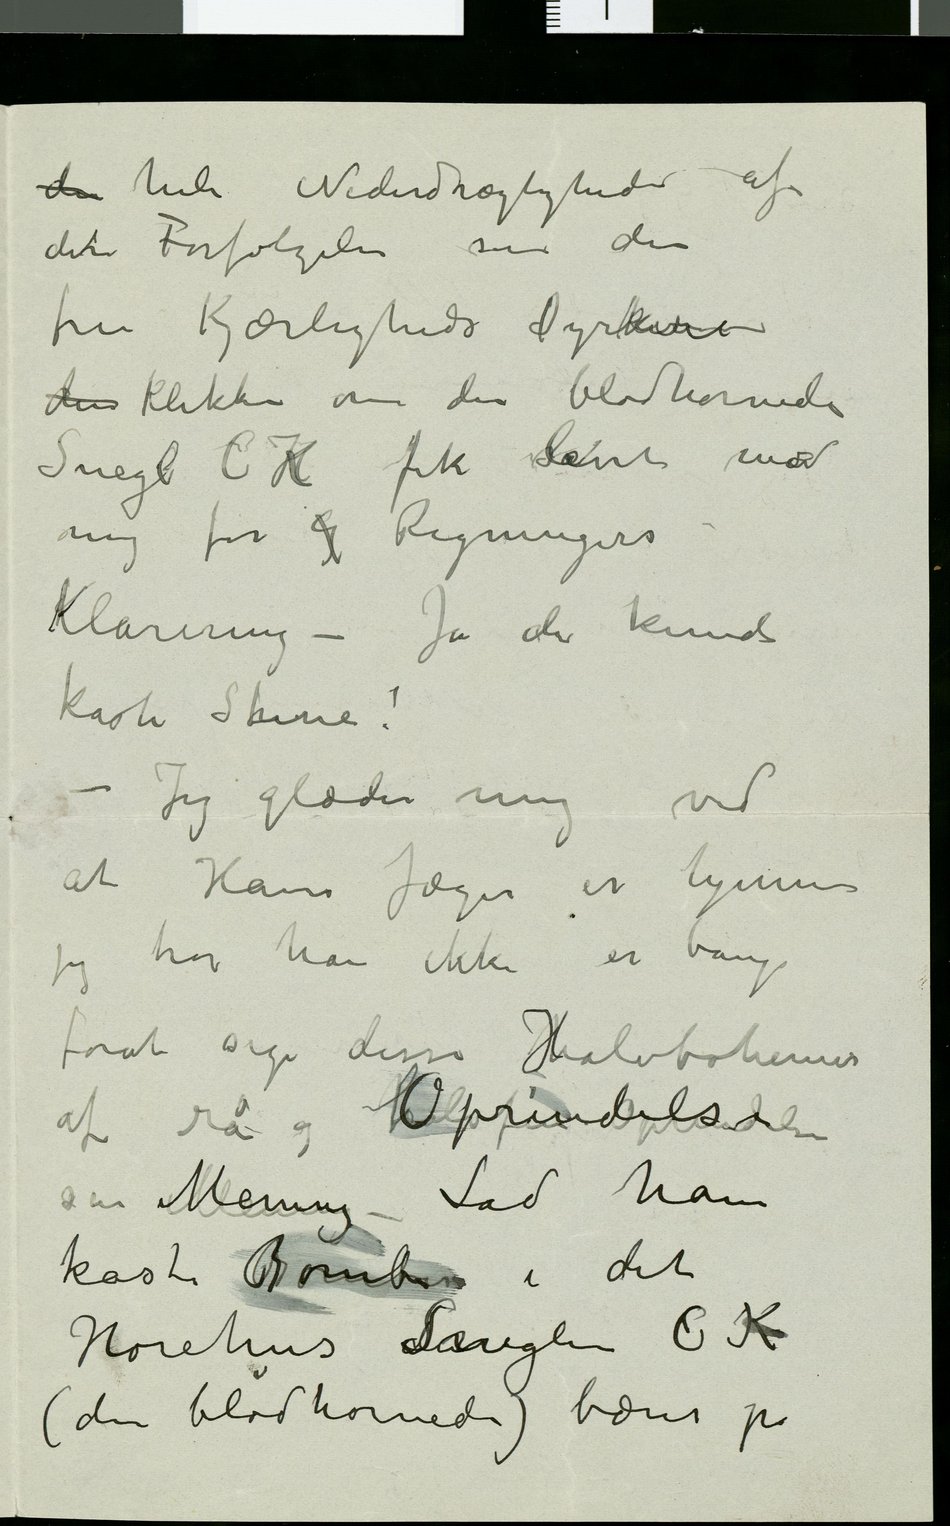 den hele Nederdrægtigheden af
den Forfølgelse som den
frie Kjærligheds Dyrkere
den Klikken om den blodhornede
Snegl C K fik lavet med
mig for Regningers
Klarering – Ja de kunde
kaste Stene!
– Jeg glæder mig ved
at Hans Jæger er hjemme
jeg tror han ikke er bange
forat sige disse Halvbohemer
af rå og Oprindelse
sin Mening – Lad ham
kaste Bomben i det
Horehus Sneglen C K
(den blodhornede) bærer på